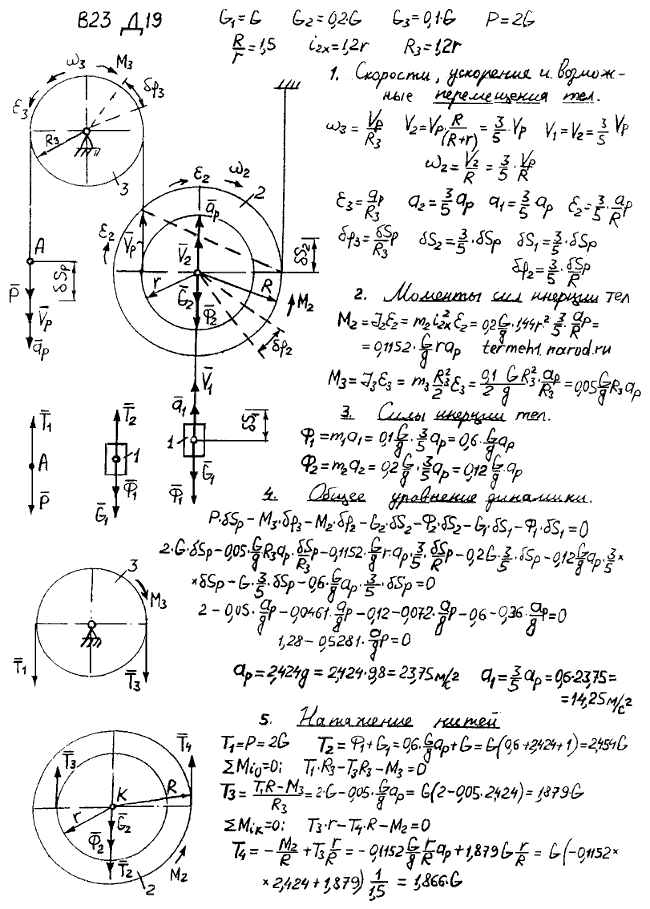 В23 Д19 G₁=G G₂=0,2·G G₃=0,1·G P=2G
R/r=1,5 i₂ₓ=1,2r R₃=1,2r
1. Скорости, ускорение и возмож-
ные перемещения тел.
ω₃=Vp/R₃ V₂=Vp·R/(R+r)=3/5·Vp V₁=V₂=3/5Vp
ω₂=V₂/R=3/5·Vp/R
ε₃=ap/R₃ a₂=3/5ap a₁=3/5ap ε₂=3/5·ap/R
δφ₃=δSp/R₃ δS₂=3/5·δSp δS₁=3/5·δSp
δφ₂=3/5·δSp/R
2. Моменты сил инерции тел
M₂=J₂ε₂=m₂i₂ₓ²ε₂=0,2G/g·1,44r²·3/5·ap/R=
=0,1152·G/g rap termeh1.narod.ru
M₃=J₃ε₃=m₃R₃²/2 ε₃=0,1/2 G/g R₃²·ap/R₃=0,05G/g R₃ap
3. Силы инерции тел.
Φ₁=m₁a₁=0,1G/g·3/5ap=0,6·G/g ap
Φ₂=m₂a₂=0,2G/g·3/5ap=0,12G/g·ap
4. Общее уровнение динамики.
P·δSp−M₃·δφ₃−M₂·δφ₂−G₂·δS₂−Φ₂·δS₂−G₁·δS₁−Φ₁·δS₁=0
2·G·δSp−0,05·G/g R₃ap·δSp/R₃−0,1152·G/g r·ap·3/5·δSp/R−0,2G·3/5·δSp−0,12G/g ap·3/5×
×δSp−G·3/5·δSp−0,6·G/g ap·3/5·δSp=0
2−0,05·ap/g−0,0461·ap/g−0,12−0,072·ap/g−0,6−0,36·ap/g=0
1,28−0,5281·ap/g=0
ap=2,424g=2,424·9,8=23,75м/с² a₁=3/5ap=0,6·23,75=
=14,25м/с²
5. Натяжение нитей
T₁=P=2G T₂=Φ₁+G₁=0,6·G/g ap+G=G(0,6·2,424+1)=2,454G
ΣMi₀=0; T₁·R₃−T₃R₃−M₃=0
T₃=(T₁R−M₃)/R₃=2·G−0,05·G/g ap=G(2−0,05·2,424)=1,879·G
ΣMiк=0; T₃·r−T₄·R−M₂=0
T₄=−M₂/R+T₃r/R=−0,1152G/g r/R ap+1,879G r/R=G(−0,1152×
×2,424+1,879)1/1,5=1,866·G
ω₃ M₃ δφ₃
ε₃
R₃
3
A
δSp
P
Vp
ap
ε₂ ω₂
2
ap
ε₂
Vp
V₂
δS₂
r
R
G₂
Φ₂
M₂
δφ₂
V₁
a₁
δS₁
1
G₁
Φ₁
T₁
A
P
T₂
1
Φ₁
G₁
3
M₃
T₁
T₃
T₃
T₄
K
R
r
G₂
Φ₂
T₂
M₂
2